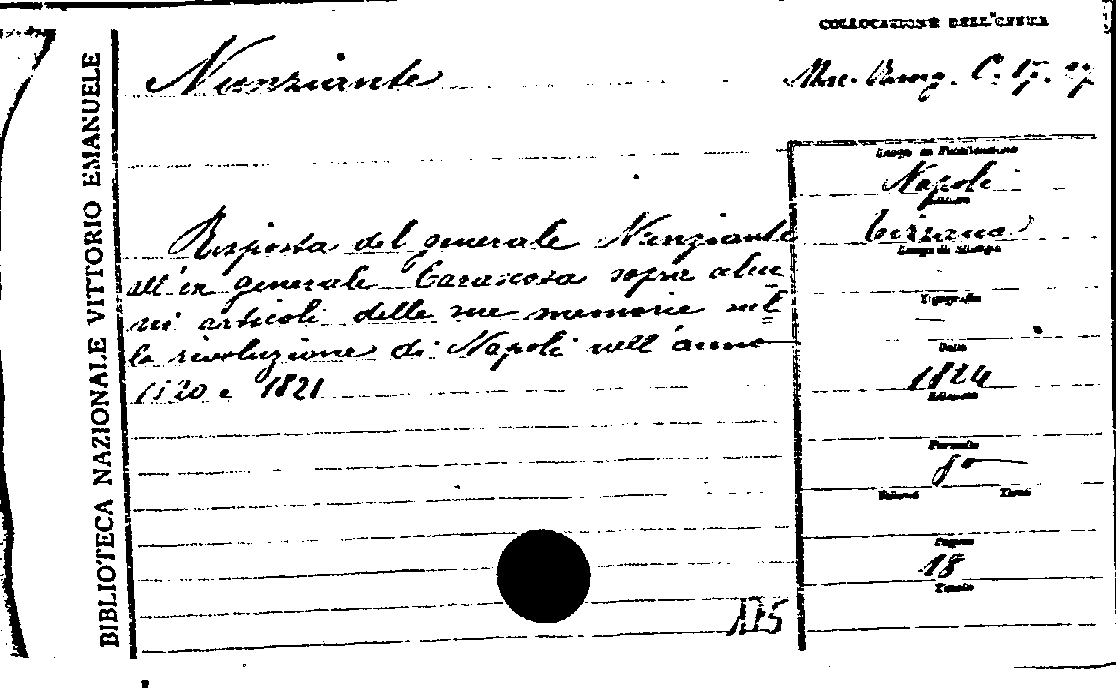 COLLOCAZIONE DELL'OPERA
BIBLIOTECA NAZIONALE VITTORIO EMANUELE
Nunziante
Misc. C. 17. 27
Luogo di Pubblicazione
Napoli
Risposta del generale Nunziante
all'ex generale Carascosa sopra alcu
ni articoli delle sue memorie sul
la rivoluzione di Napoli nell'anno
1820 e 1821
Luogo di Stampa
Tipografia
Data
1824
Edizione
Formato
8º
Volumi
Tomi
Pagine
18
Tavole